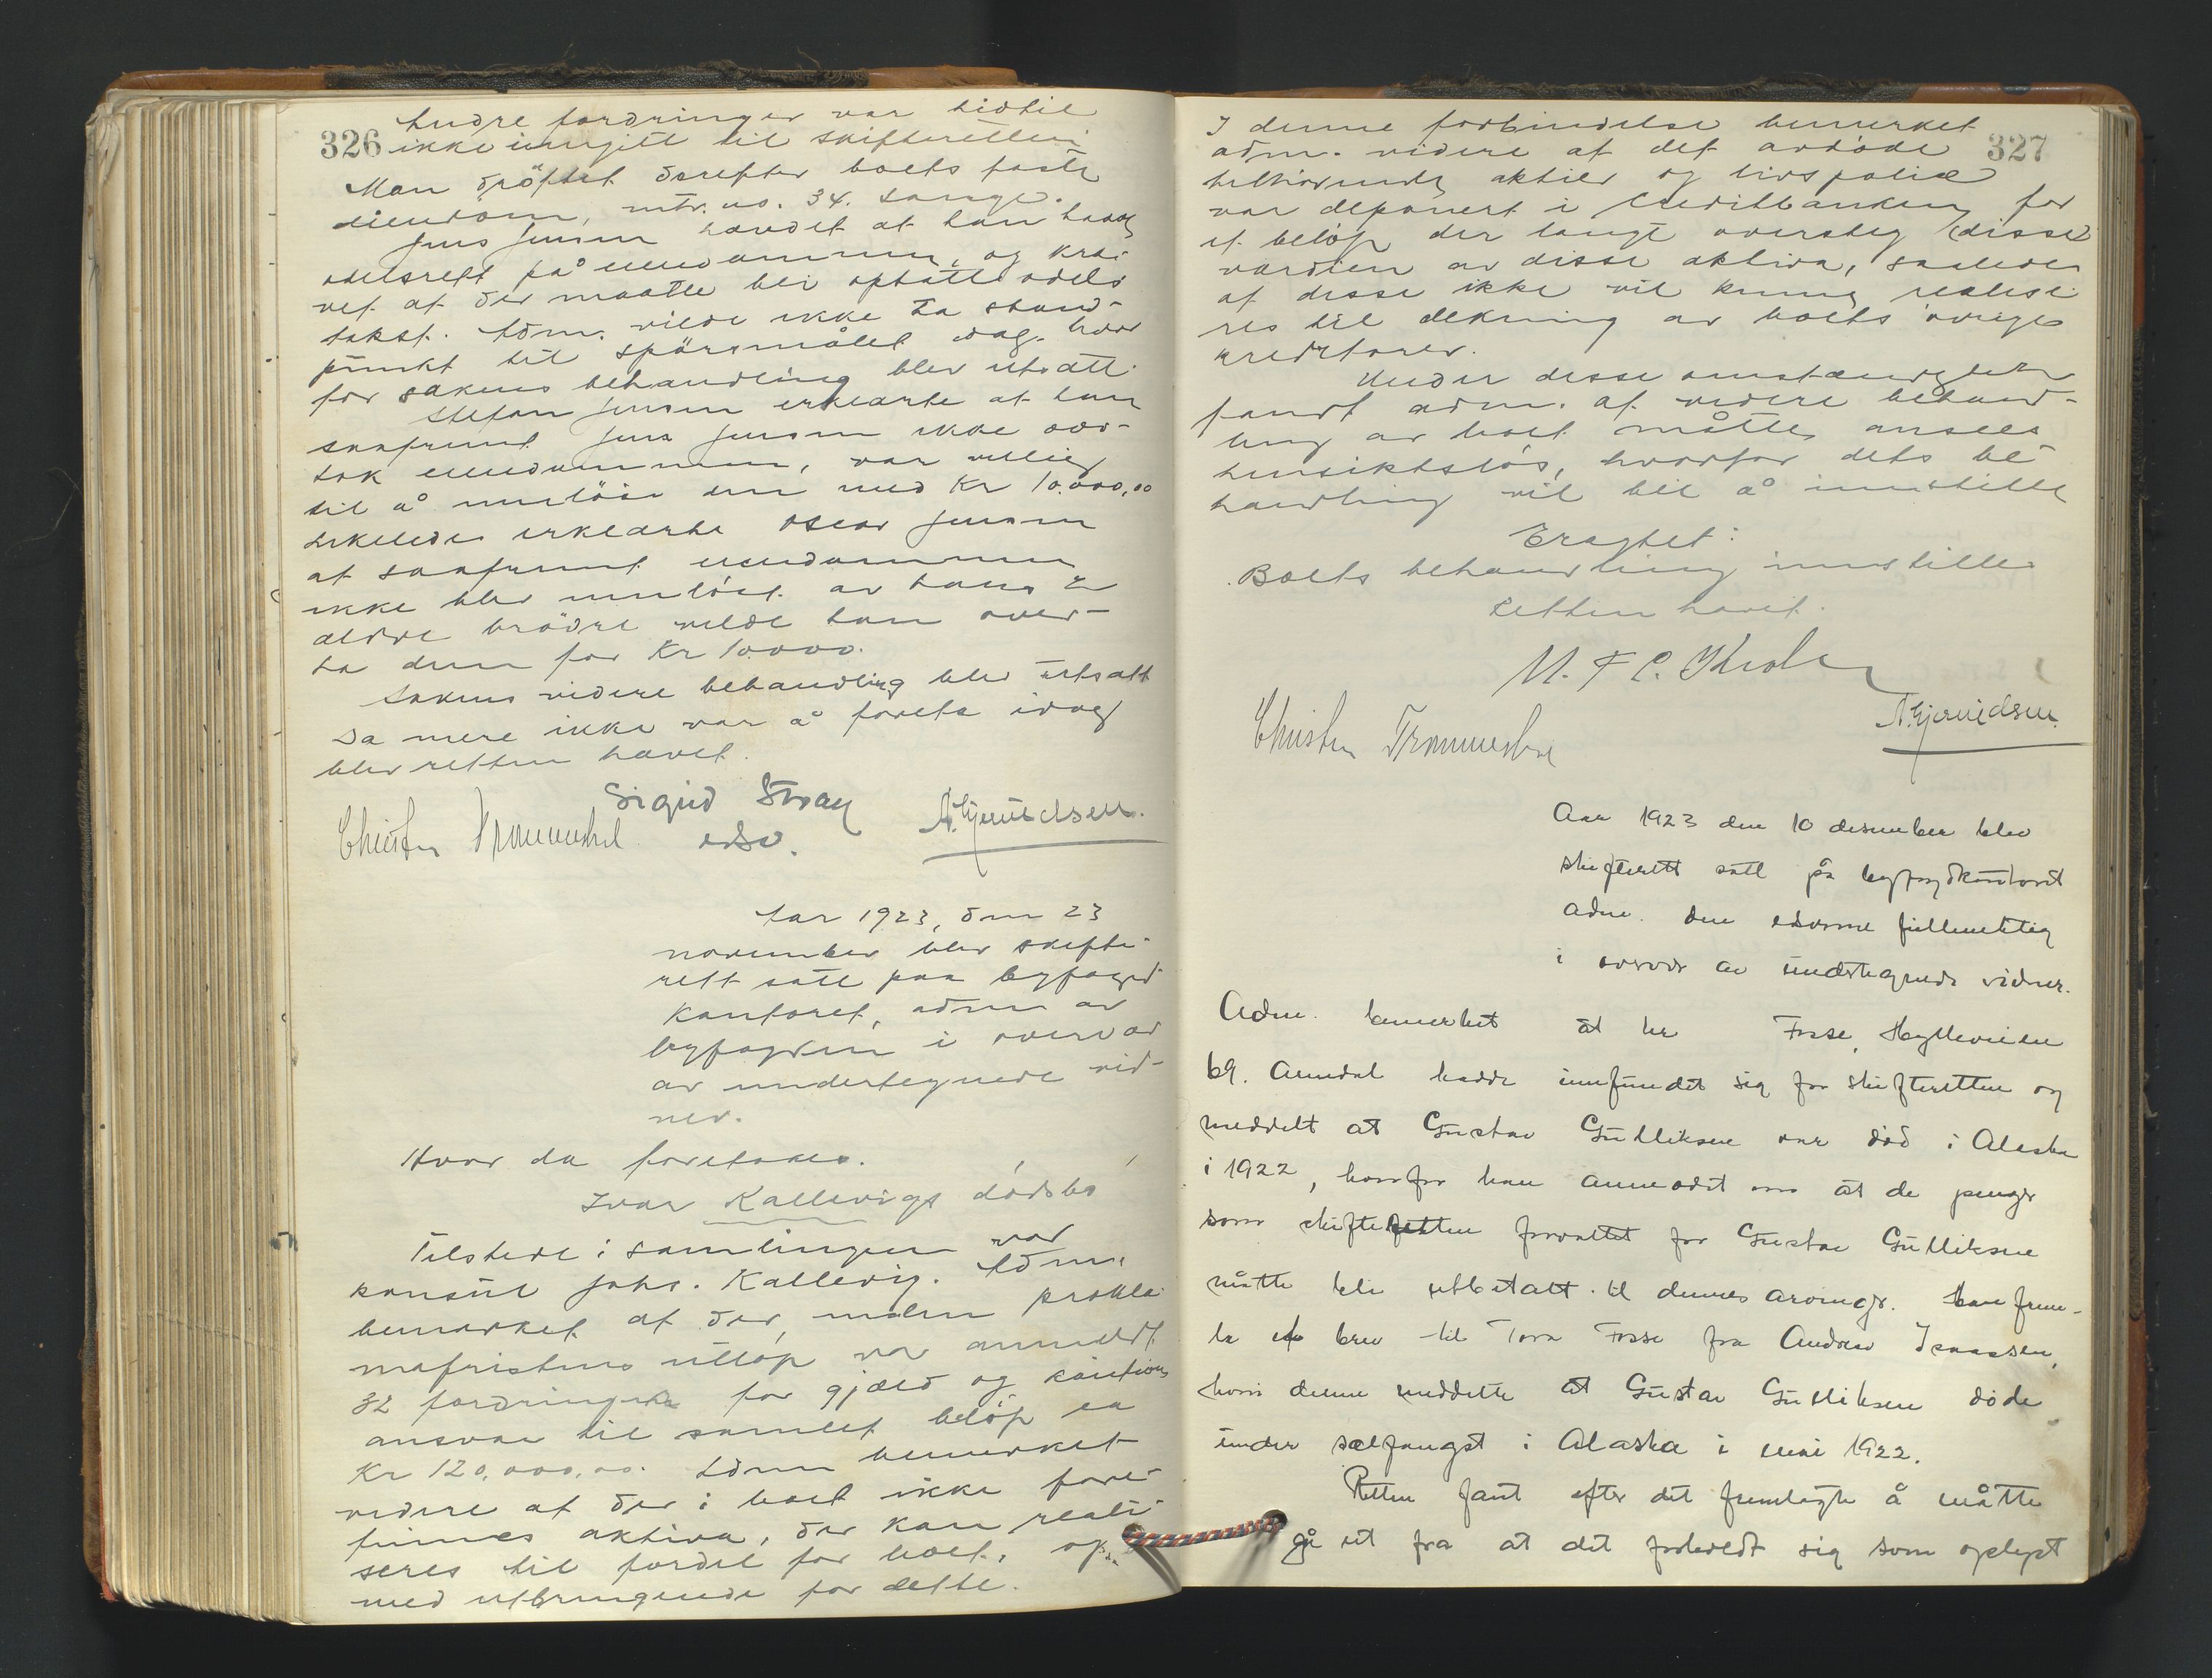 326
Andre fordringer var hidtil
ikke inngitt til skifteretten
Man drøftet derefter boets faste
eiendom, mtr. no. 34. Lange.
Jens Jensen hævdet at han havde
odelsrett på eiendommen, og kræ-
vet at der maatte bli optatt odels
takst. Adm. vilde ikke ta stand-
punkt til spørsmålet idag, hvor
for sakens behandling blev utsatt.
Stefan Jensen erklærte at han
saafremt Jens Jensen ikke over-
tok eiendommen, var villig
til å innløse den med Kr 10.000,00
Likeledes erklærte Oscar Jensen
at saafremt eiendommen
ikke blev innløst av hans 2
ældre brødre vilde han over-
ta den for Kr 10.000.
Sakens videre behandling blev utsatt
Da mere ikke var å foreta idag
blev retten hævet.
Sigrid Stray
edsv.
Christen Trommestad
A. Gjeruldsen.
Aar 1923, den 23
november blev skifte-
rett satt paa byfogd-
kontoret, adm av
byfogden i overvær
av undertegnede vid-
ner.
Hvor da foretokes.
Ivar Kallevigs dødsbo
Tilstede i samlingen var
konsul Johs. Kallevig. Adm.
bemerket at der, inden prokla-
mafristens utløp var anmeldt
32 fordringer for gjæld og kautions
ansvar til samlet beløp ca
Kr 120.000,00. Adm bemerket
videre at der i boet ikke fore-
finnes aktiva, der kan reali-
seres til fordel for boet, og
med utbringende for dette.
327
I denne forbindelse bemerket
adm. videre at det avdøde
tilhørende aktier og livspolice
var deponert i Creditbanken for
et beløp der langt oversteg (disse)
værdien av disse aktiva, saaledes
at disse ikke vil kunne realise-
res til dekning av boets øvrige
kreditorer.
Under disse omstændigheter
fandt adm. at videre behand-
ling av boet måtte ansees
hensiktsløs, hvorfor dets be-
handling vil bli å innstille
Eragtet:
Boets behandling innstilles
Retten hævet.
Christen Trommestad
A. Gjeruldsen.
Aar 1923 den 10 desember blev
skifterett satt på byfogdkontoret
adm. den edsvorne fullmektig
i overvær av undertegnede vidner.
Adm. bemerket at hr Fosse, Høgleveien
69. Arendal hadde innfundet sig for skifteretten og
meddelt at Gustav Gulliksen var død i Alaska
i 1922, hvorfor han anmodet om at de penger
som skifteretten forvaltet for Gustav Gulliksen
måtte bli utbetalt til dennes arvinger. Han frem-
la et brev til Tora Fosse fra Andreas Isaksen,
hvori denne meddelte at Gustav Gulliksen døde
under sælfangst i Alaska i mai 1922.
Retten fant efter det fremlagte å måtte
gå ut fra at det forholdt sig som oplyst